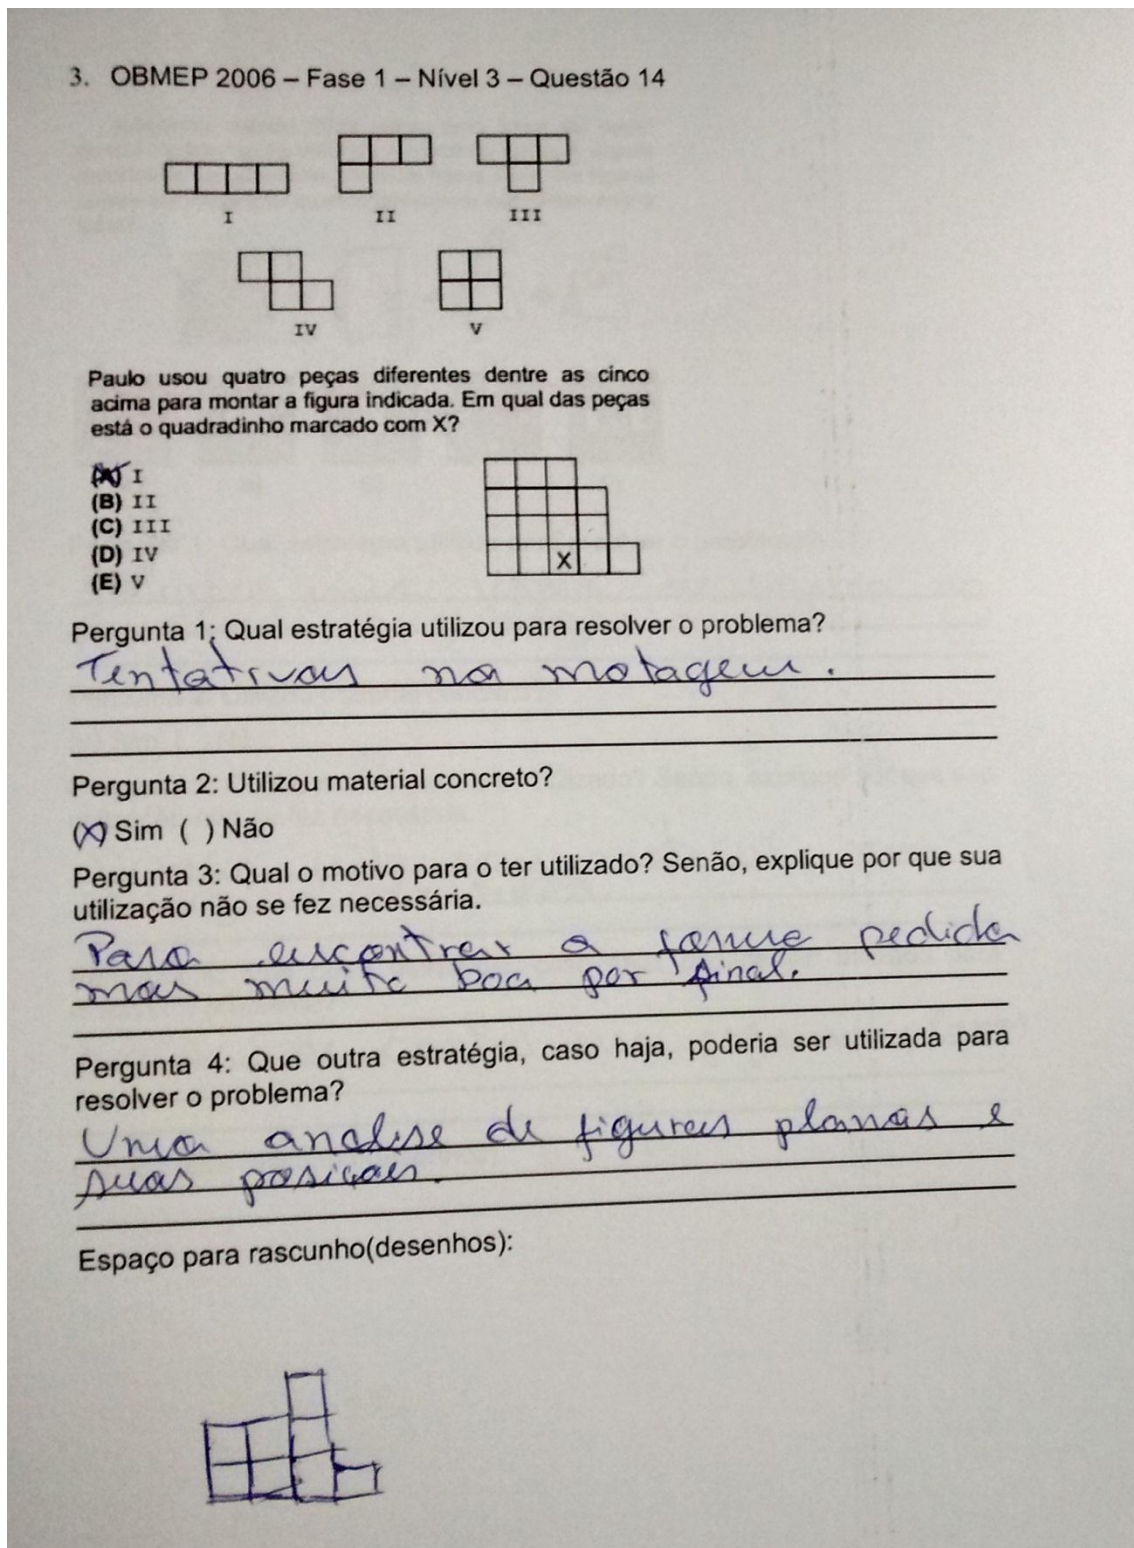 3. OBMEP 2006 – Fase 1 – Nível 3 – Questão 14
I II III
IV V
Paulo usou quatro peças diferentes dentre as cinco
acima para montar a figura indicada. Em qual das peças
está o quadradinho marcado com X?
(A) I
(B) II
(C) III
(D) IV
(E) V
X
Pergunta 1: Qual estratégia utilizou para resolver o problema?
Tentativas na motagem.
Pergunta 2: Utilizou material concreto?
(X) Sim ( ) Não
Pergunta 3: Qual o motivo para o ter utilizado? Senão, explique por que sua
utilização não se fez necessária.
Para encontrar a forma pedida
mas muito boa por final.
Pergunta 4: Que outra estratégia, caso haja, poderia ser utilizada para
resolver o problema?
Uma analise de figuras planas e
suas posiçoes.
Espaço para rascunho(desenhos):